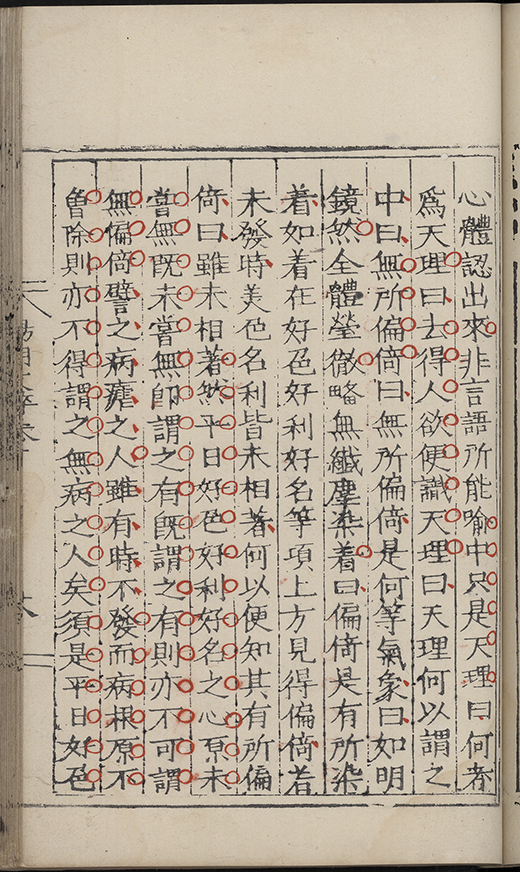 心體認出來非言語所能喻中只是天理曰何者
爲天理曰去得人欲便識天理曰天理何以謂之
中曰無所偏倚曰無所偏倚是何等氣象曰如明
鏡然全體瑩徹略無纖塵染着曰偏倚是有所染
着如着在好色好利好名等項上方見得偏倚若
未發時美色名利皆未相著何以便知其有所偏
倚曰雖未相著然平日好色好利好名之心原未
嘗無既未嘗無卽謂之有旣謂之有則亦不可謂
無偏倚譬之病瘧之人雖有時不發而病根原不
曾除則亦不得謂之無病之人矣須是平日好色